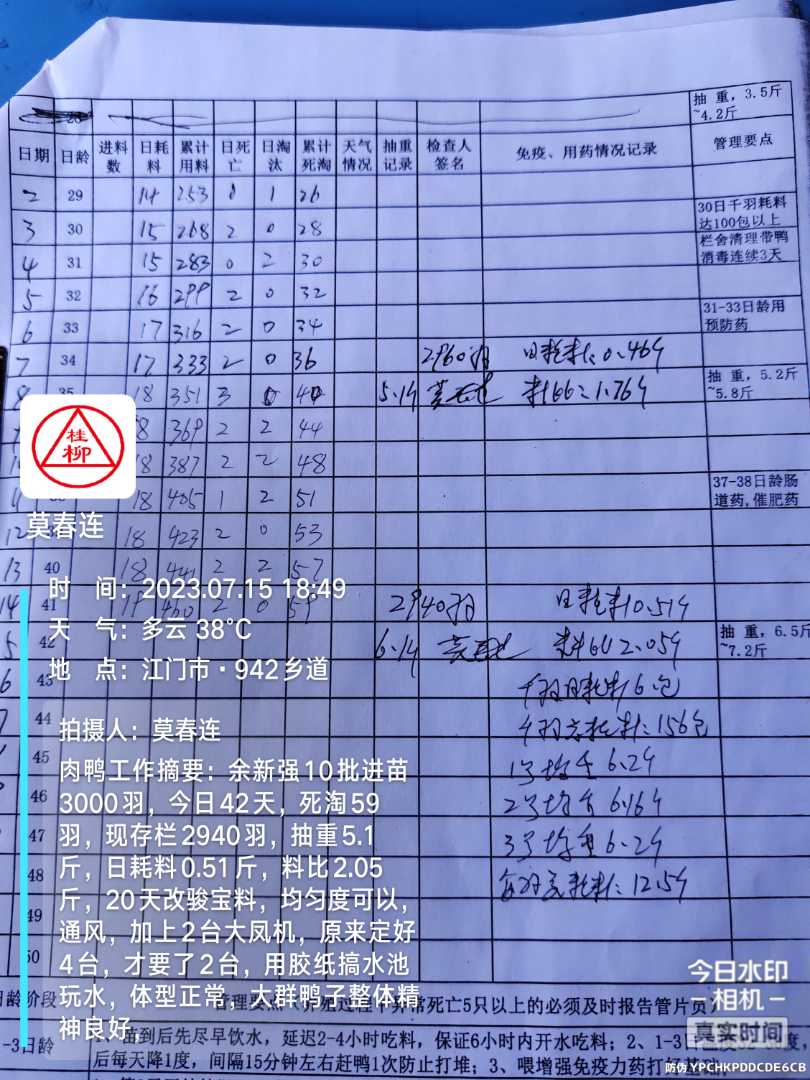 28
抽 重, 3.5斤
~4.2斤
日期 日龄 进料数 日耗料 累计用料 日死亡 日淘汰 累计死淘 天气情况 抽重记录 检查人签名 免疫、用药情况记录 管理要点
2 29 14 253 0 1 26
3 30 15 268 2 0 28
30日千羽耗料
达100包以上
栏舍清理带鸭
消毒连续3天
4 31 15 283 0 2 30
5 32 16 299 2 0 32
31-33日龄用
预防药
6 33 17 316 2 0 34
7 34 17 333 2 0 36 2960羽 日耗料:0.46斤
8 35 18 351 3 0 40 5.1斤 料比:1.76斤
抽 重, 5.2斤
~5.8斤
18 369 2 2 44
18 387 2 2 48
18 405 1 2 51
37-38日龄肠
道药,催肥药
12 18 423 2 0 53
13 40 18 441 2 2 57
14 41 19 460 2 0 59 2940羽 日耗料0.51斤
42 6.1斤 料比2.05斤
抽 重, 6.5斤
~7.2斤
43 千羽日耗料6.包
44 千羽总耗料:156包
45 1号均重6.2斤
46 2号均重6.16斤
47 3号均重6.2斤
48 每羽总耗料:12.5斤
49
50
桂柳
莫春连
时 间：2023.07.15 18:49
天 气：多云 38℃
地 点：江门市·942乡道
拍摄人：莫春连
肉鸭工作摘要：余新强10批进苗
3000羽，今日42天，死淘59
羽，现存栏2940羽，抽重5.1
斤，日耗料0.51斤，料比2.05
斤，20天改骏宝料，均匀度可以，
通风，加上2台大风机，原来定好
4台，才要了2台，用胶纸搞水池
玩水，体型正常，大群鸭子整体精
神良好
日龄阶段 管理要点（养殖过程中异常死亡5只以上的必须及时报告管片员）
1-3日龄
苗到后先尽早饮水，延迟2-4小时吃料，保证6小时内开水吃料；2、1-3日
后每天降1度，间隔15分钟左右赶鸭1次防止打堆；3、喂增强免疫力药打好基础；
今日水印
相机
真实时间
防伪 YPCHKPDDCDE6CB